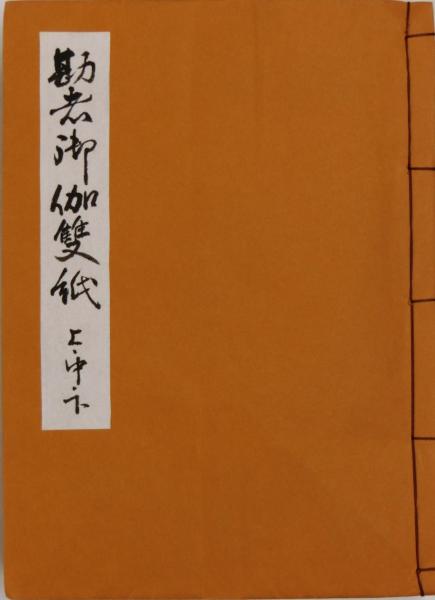 勘者御伽雙紙 上・中・下